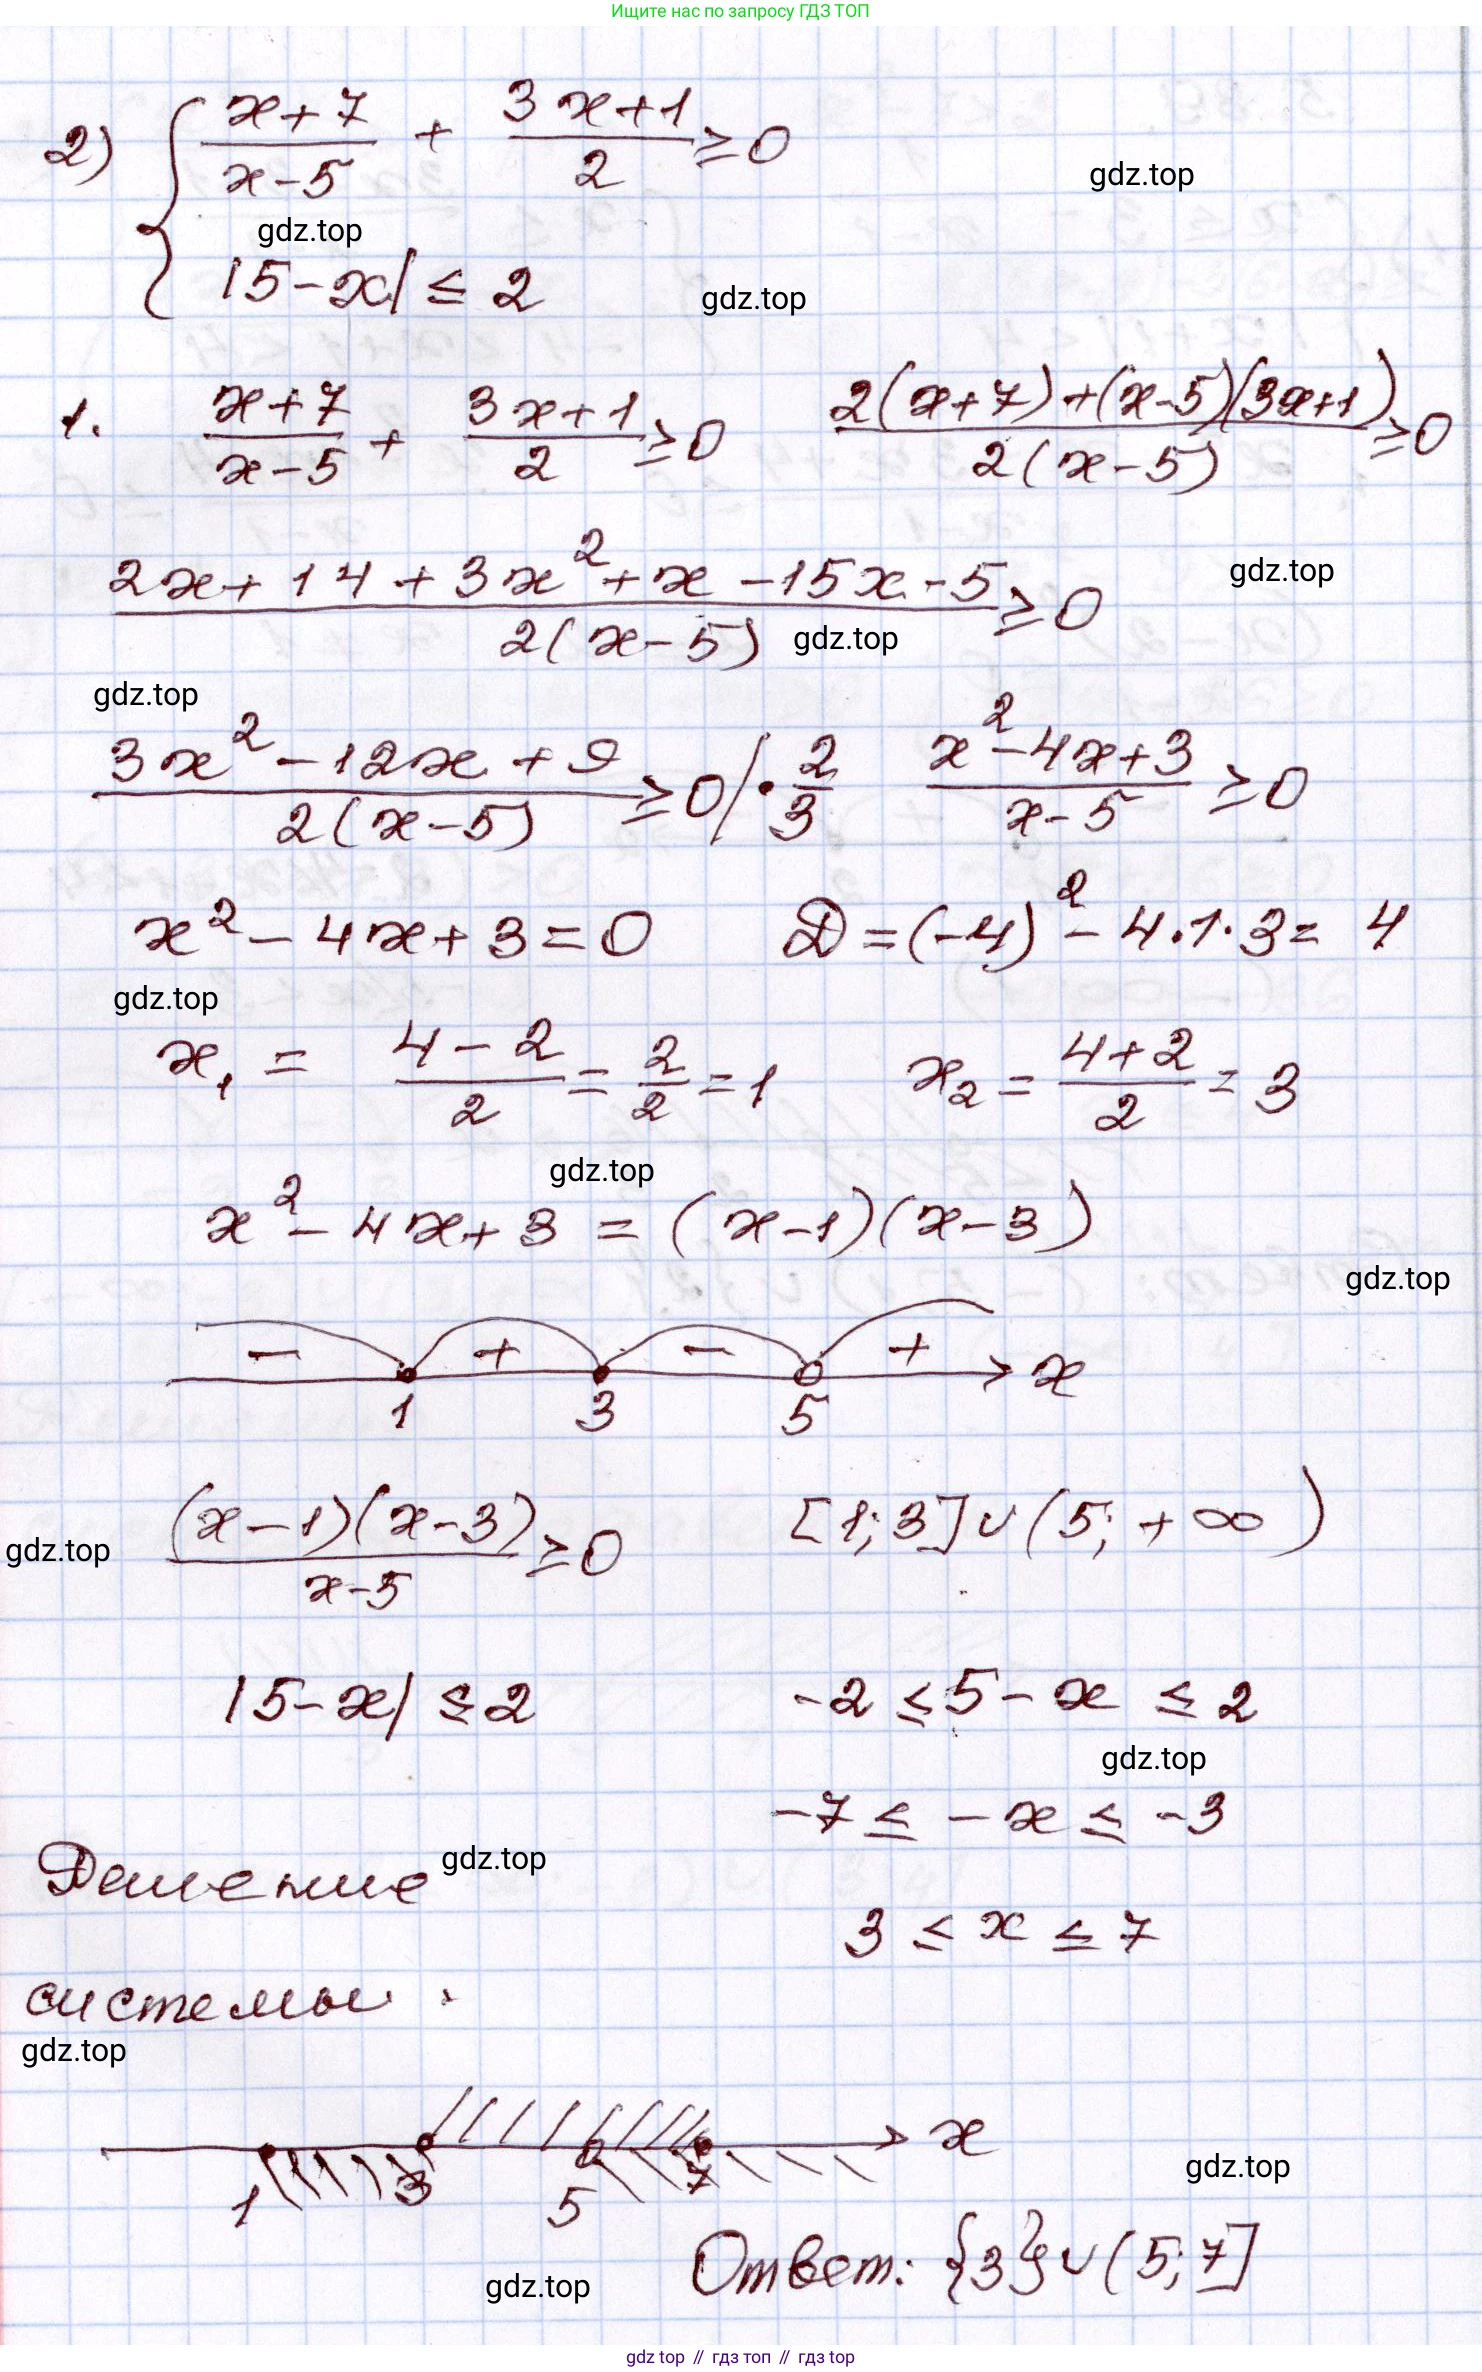 Ищите нас по запросу ГДЗ ТОП
2) { (x+7)/(x-5) + (3x+1)/2 ≥ 0
gdz.top
gdz.top
|5-x| ≤ 2
gdz.top
1. (x+7)/(x-5) + (3x+1)/2 ≥ 0 (2(x+7)+(x-5)(3x+1))/(2(x-5)) ≥ 0
(2x+14+3x²+x-15x-5)/(2(x-5)) ≥ 0
gdz.top
gdz.top
gdz.top
(3x²-12x+9)/(2(x-5)) ≥ 0 |·2/3 (x²-4x+3)/(x-5) ≥ 0
x²-4x+3=0 D=(-4)²-4·1·3= 4
gdz.top
x₁ = (4-2)/2 = 2/2 = 1 x₂ = (4+2)/2 = 3
gdz.top
x²-4x+3 = (x-1)(x-3)
gdz.top
- + - + x
1 3 5
(x-1)(x-3)/(x-5) ≥ 0 [1;3]∪(5;+∞)
gdz.top
|5-x| ≤ 2 -2 ≤ 5-x ≤ 2
gdz.top
-7 ≤ -x ≤ -3
Решение
gdz.top
3 ≤ x ≤ 7
системы:
gdz.top
x
1 3 5 7
gdz.top
Ответ: {3}∪(5;7]
gdz.top
gdz top // гдз топ // гдз top